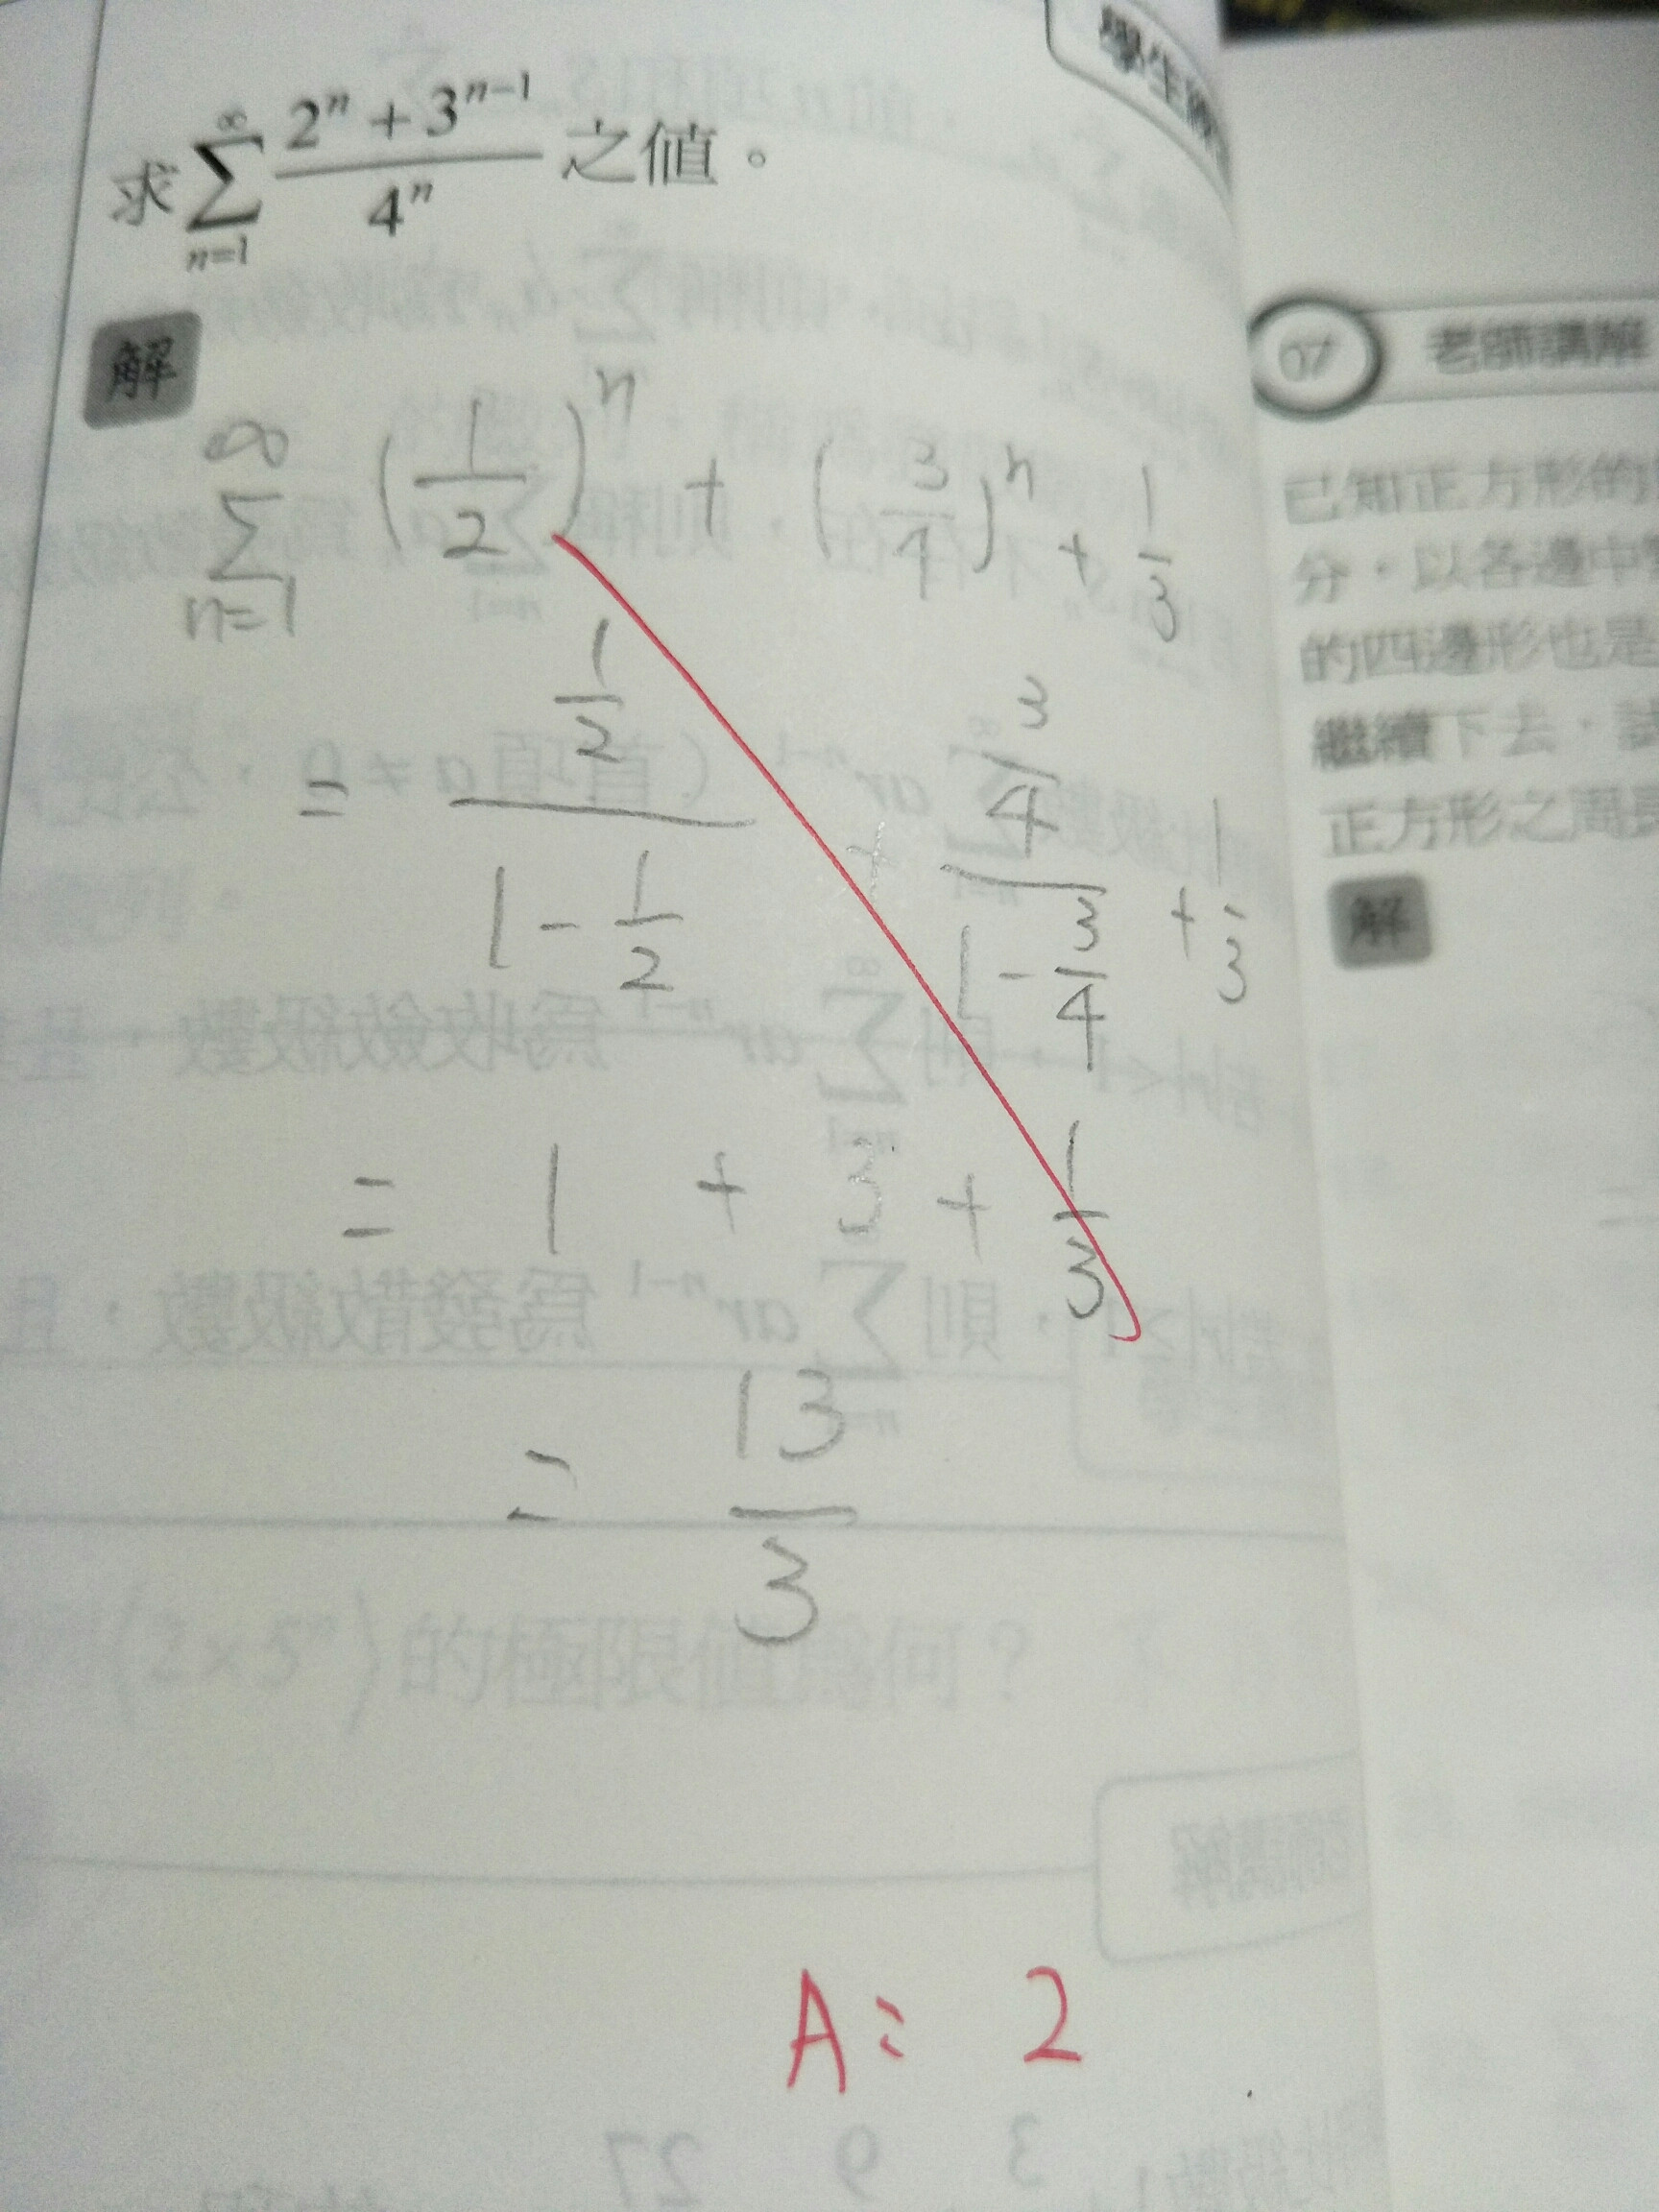 學生練
求 ∑_{n=1}^{∞} (2^n + 3^{n-1}) / 4^n 之值。
解
∑_{n=1}^{∞} (1/2)^n + (3/4)^n + 1/3
= (1/2) / (1 - 1/2) + (3/4) / (1 - 3/4) + 1/3
= 1 + 3 + 1/3
= 13/3
A: 2
07 老師講解
已知正方形的
分,以各邊中
的四邊形也是
繼續下去,試
正方形之周長
解